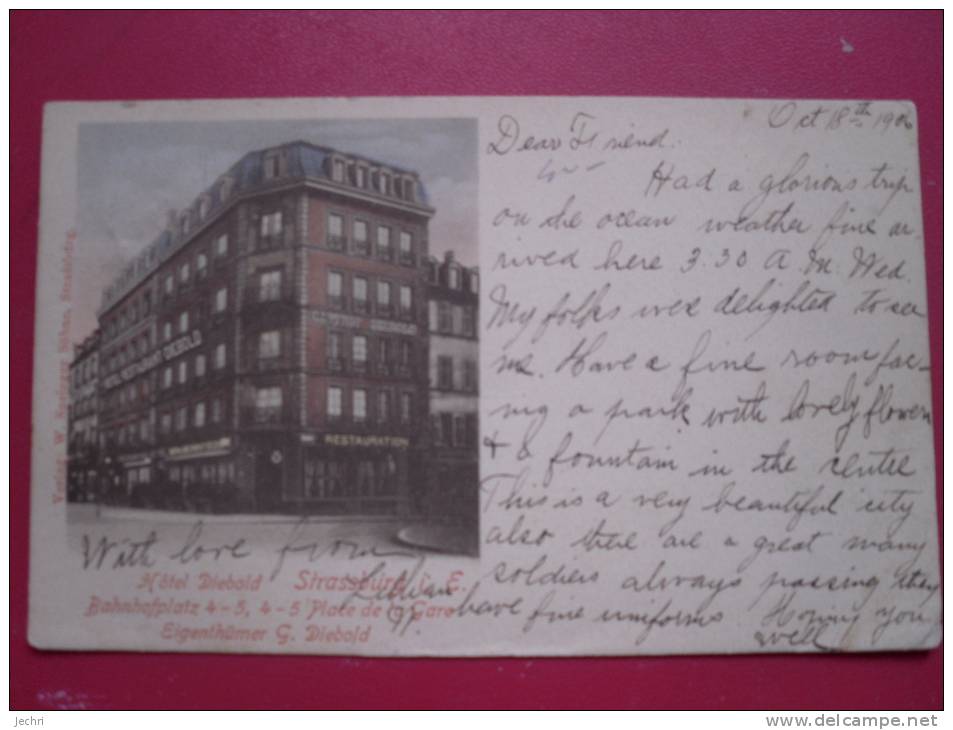 Oct 18th 1906
Dear Friend.
Had a glorious trip
on the ocean weather fine ar-
rived here 3.30 A.M. Wed.
My folks were delighted to see
me. Have a fine room fac-
ing a park with lovely flowers
+ a fountain in the centre
This is a very beautiful city
also there are a great many
soldiers always passing they
have fine uniforms Hoping you
well
With love from
Lillian
HÔTEL RESTAURANT DIEBOLD
RESTAURATION
Hôtel Diebold Strassburg i. E.
Bahnhofplatz 4-5, 4-5 Place de la Gare
Eigenthümer G. Diebold
Jechri
www.delcampe.net